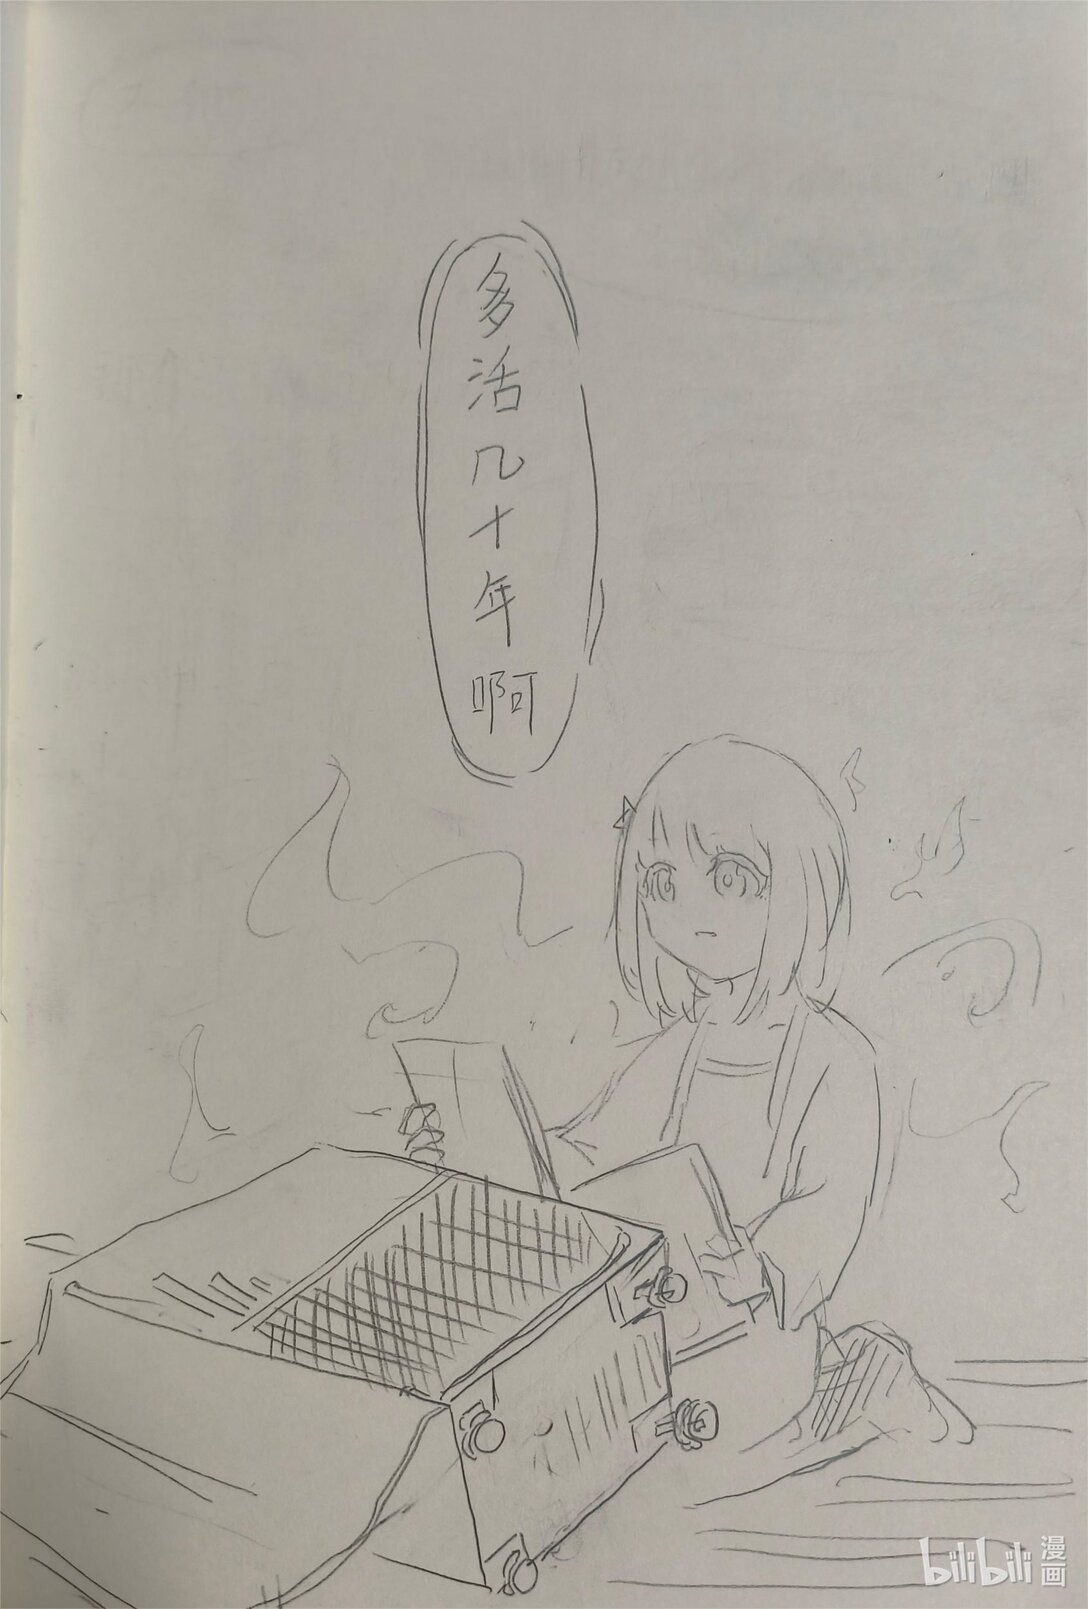 多活几十年啊
bilibili 漫画